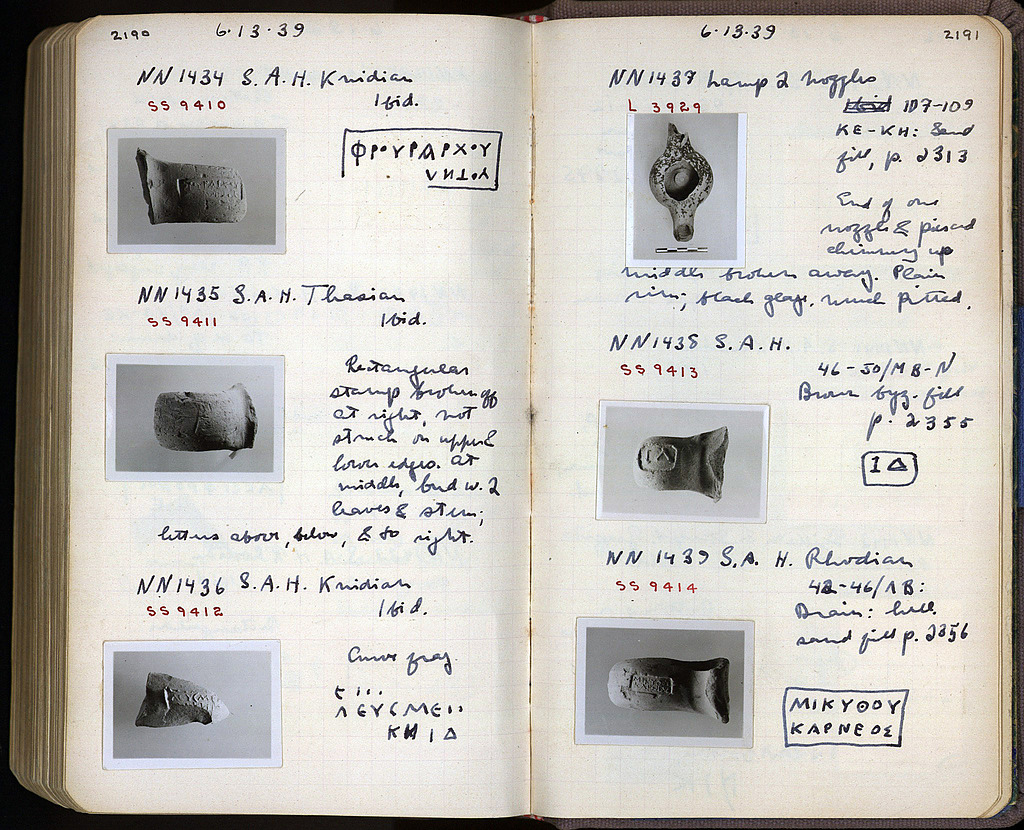 2190
6·13·39
NN1434 S.A.H. Knidian
SS 9410
Ibid.
ΦΡΟΥΡΑΡΧΟΥ
NN1435 S.A.H. Thasian
SS 9411
Ibid.
Rectangular
stamp broken off
at right, not
struck on upper &
lower edges. At
middle, bud w. 2
leaves & stem;
letters above, below, & to right.
NN1436 S.A.H. Knidian
SS 9412
Ibid.
Curve frag.
Ε...
ΛΕΥCΜΕ..
ΚΝΙΔ
6·13·39
2191
NN1437 Lamp 2 nozzles
L 3929
107-109
ΚΕ-ΚΗ: Sand
fill, p. 2313
End of one
nozzle & pierced
chimney up
middle broken away. Plain
rim; black glaze, much pitted.
NN1438 S.A.H.
SS 9413
46-50/ΜΒ-Ν
Brown byz. fill
p. 2355
ΙΔ
NN 1439 S.A.H. Rhodian
SS 9414
42-46/ΛΒ:
Drain: hell.
sand fill p. 2356
ΜΙΚΥΘΟΥ
ΚΑΡΝΕΟΣ